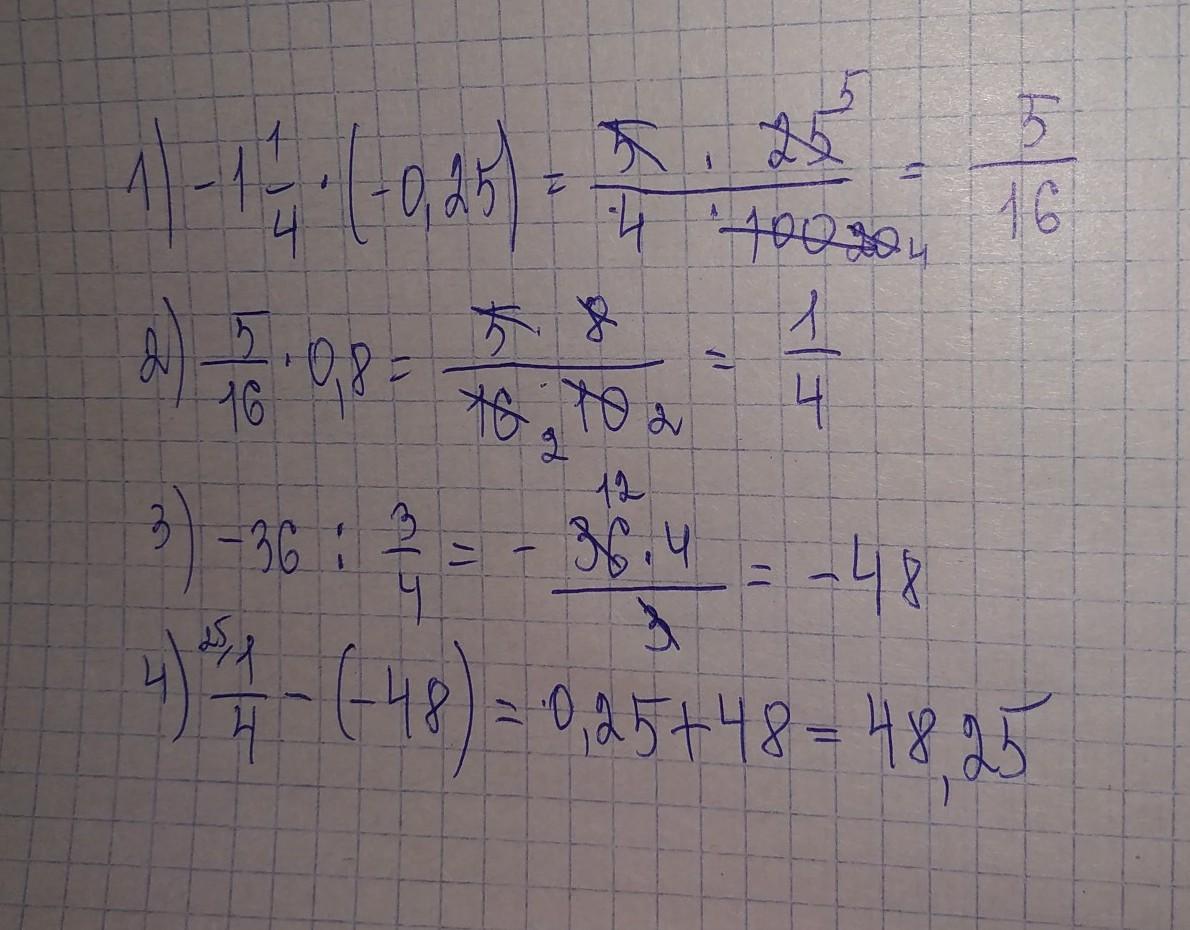 1) -1 1/4 · (-0,25) = 5 · 25 5 / 4 · 100 20 4 = 5/16
2) 5/16 · 0,8 = 5 · 8 / 16 2 · 10 2 = 1/4
3) -36 : 3/4 = - 12 36 · 4 / 3 = -48
4) 25, 1/4 - (-48) = 0,25 + 48 = 48,25